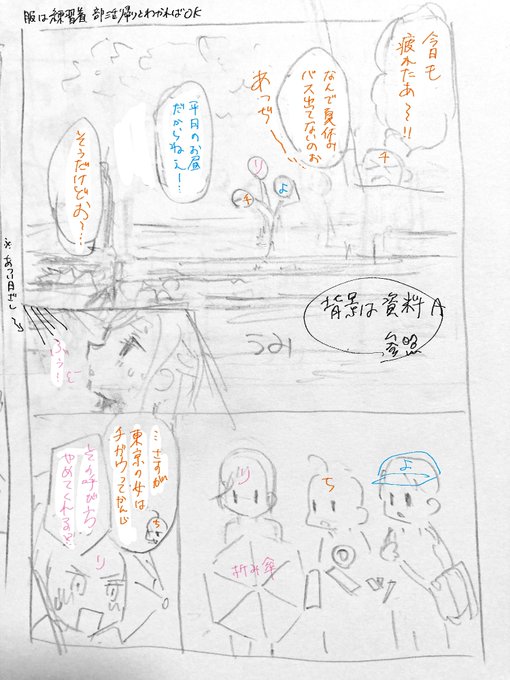 服は練習着 部活帰りとわかればOK
今日も
疲れたあ〜!!
チ
なんで夏休み
バス出てないのお
あっぢ〜
平日のお昼
だからねぇー…
そうだけどお〜…
り
チ
よ
※あつい日ざし
背景は資料A
参照
うみ
ふぅー
…さすが
東京の女は
チガウってかんじ
ちよ
その呼び方
やめてくれる!?
り
り
ち
よ
折み傘